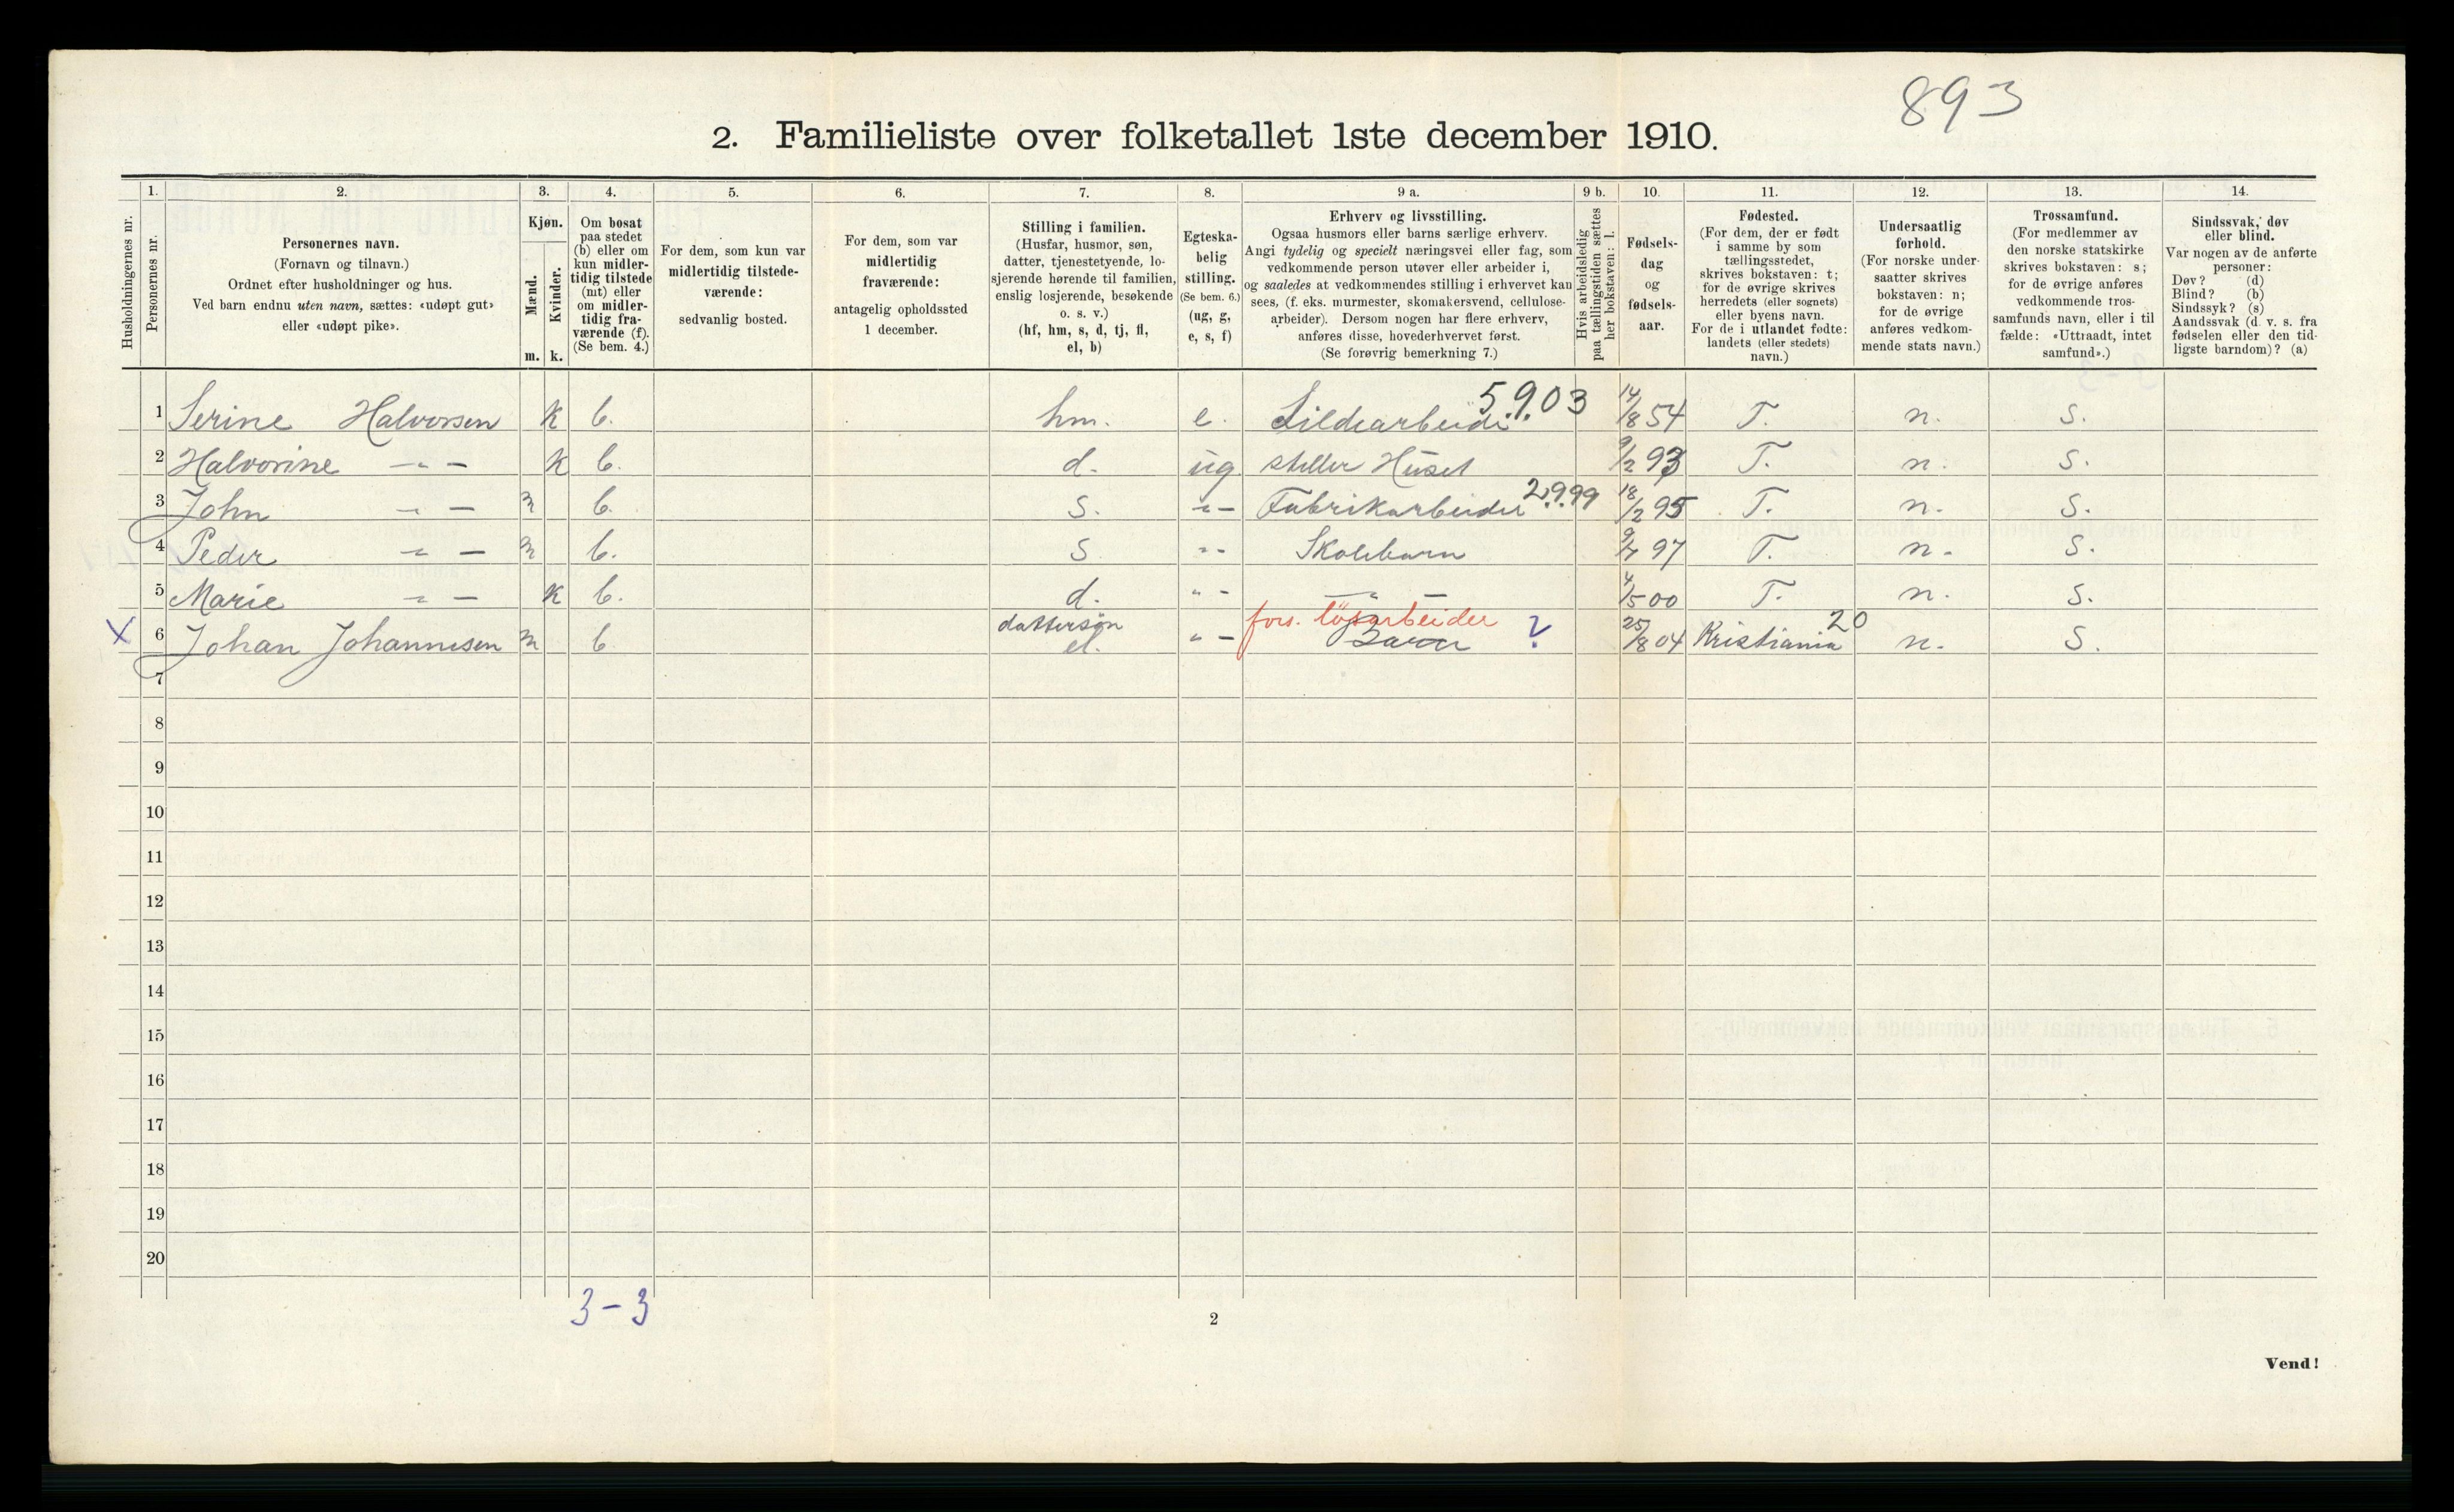 893
2. Familieliste over folketallet 1ste december 1910.
1. 2. 3. 4. 5. 6. 7. 8. 9 a. 9 b. 10. 11. 12. 13. 14.
Husholdningernes nr.
Personernes nr.
Personernes navn.
(Fornavn og tilnavn.)
Ordnet efter husholdninger og hus.
Ved barn endnu uten navn, sættes: «udøpt gut»
eller «udøpt pike».
Kjøn.
Mænd.
Kvinder.
m. k.
Om bosat
paa stedet
(b) eller om
kun midler-
tidig tilstede
(mt) eller
om midler-
tidig fra-
værende (f).
(Se bem. 4.)
For dem, som kun var
midlertidig tilstede-
værende:
sedvanlig bosted.
For dem, som var
midlertidig
fraværende:
antagelig opholdssted
1 december.
Stilling i familien.
(Husfar, husmor, søn,
datter, tjenestetyende, lo-
sjerende hørende til familien,
enslig losjerende, besøkende
o. s. v.)
(hf, hm, s, d, tj, fl,
el, b)
Egteska-
belig
stilling.
(Se bem. 6.)
(ug, g,
e, s, f)
Erhverv og livsstilling.
Ogsaa husmors eller barns særlige erhverv.
Angi tydelig og specielt næringsvei eller fag, som
vedkommende person utøver eller arbeider i,
og saaledes at vedkommendes stilling i erhvervet kan
sees, (f. eks. murmester, skomakersvend, cellulose-
arbeider). Dersom nogen har flere erhverv,
anføres disse, hovederhvervet først.
(Se forøvrig bemerkning 7.)
Hvis arbeidsledig
paa tællingstiden sættes
her bokstaven: l.
Fødsels-
dag
og
fødsels-
aar.
Fødested.
(For dem, der er født
i samme by som
tællingsstedet,
skrives bokstaven: t;
for de øvrige skrives
herredets (eller sognets)
eller byens navn.
For de i utlandet fødte:
landets (eller stedets)
navn.)
Undersaatlig
forhold.
(For norske under-
saatter skrives
bokstaven: n;
for de øvrige
anføres vedkom-
mende stats navn.)
Trossamfund.
(For medlemmer av
den norske statskirke
skrives bokstaven: s;
for de øvrige anføres
vedkommende tros-
samfunds navn, eller i til
fælde: «Uttraadt, intet
samfund».)
Sindssvak, døv
eller blind.
Var nogen av de anførte
personer:
Døv? (d)
Blind? (b)
Sindssyk? (s)
Aandssvak (d. v. s. fra
fødselen eller den tid-
ligste barndom)? (a)
1 Serine Halvorsen K b. hm. e. Sildearbeide 5.9.03 14/8 54 T. n. S.
2 Halvorine - " - K b. d. ug steller Huset 9/2 93 T. n. S.
3 John - " - m b. S. " - Fabrikarbeider 2.9.99 18/2 95 T. n. S.
4 Peder - " - m b. S " - Skolebarn 97 T. n. S.
5 Marie - " - K b. d. " - - " - 4/5 00 T. n. S.
X 6 Johan Johannesen m b dattersøn el. " - fors. løsarbeider Barn ? 25/8 04 Kristiania 20 n. S.
7
8
9
10
11
12
13
14
15
16
17
18
19
20
3-3
2
Vend!